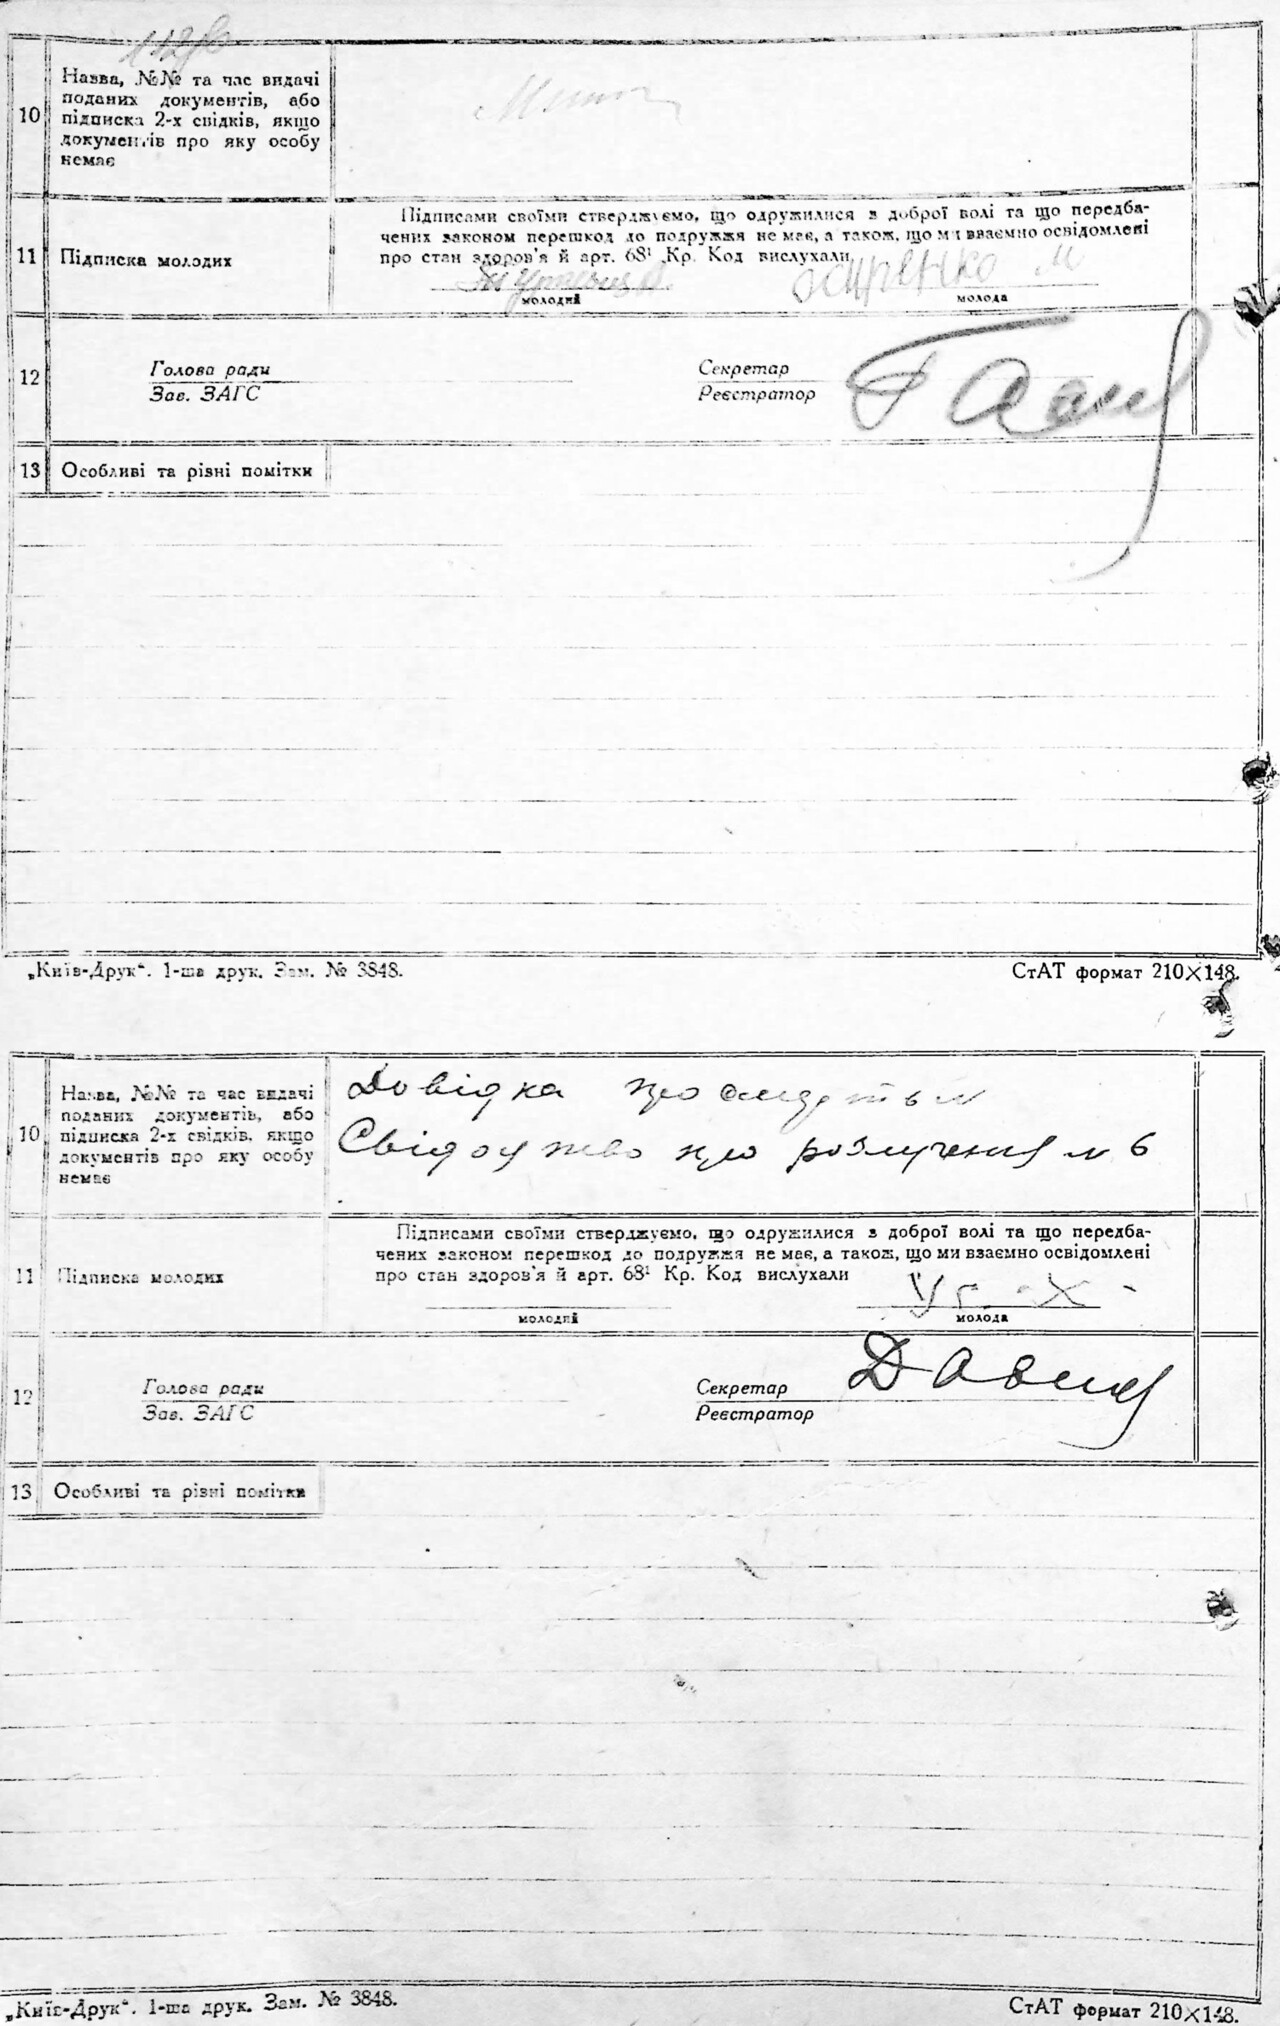 112
10
Назва, №№ та час видачі
поданих документів, або
підписка 2-х свідків, якщо
документів про яку особу
немає
11
Підписка молодих
Підписами своїми стверджуємо, що одружилися з доброї волі та що передба-
чених законом перешкод до подружжя не має, а також, що ми взаємно освідомлені
про стан здоров'я й арт. 68¹ Кр. Код вислухали
молодий
молода
12
Голова ради
Зав. ЗАГС
Секретар
Реєстратор
13
Особливі та різні помітки
„Київ-Друк“. 1-ша друк. Зам. № 3848.
СтАТ формат 210×148.
10
Назва, №№ та час видачі
поданих документів, або
підписка 2-х свідків, якщо
документів про яку особу
немає
Довідка про смерть №
Свідоцтво про розлучення № 6
11
Підписка молодих
Підписами своїми стверджуємо, що одружилися з доброї волі та що передба-
чених законом перешкод до подружжя не має, а також, що ми взаємно освідомлені
про стан здоров'я й арт. 68¹ Кр. Код вислухали
молодий
молода
12
Голова ради
Зав. ЗАГС
Секретар
Реєстратор
13
Особливі та різні помітки
„Київ-Друк“. 1-ша друк. Зам. № 3848.
СтАТ формат 210×148.